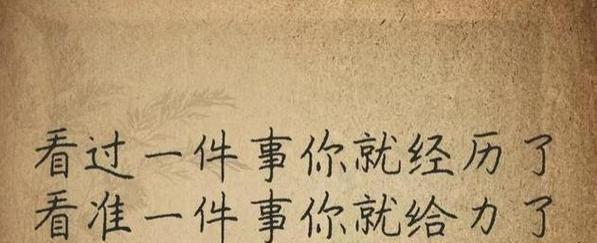 看过一件事你就经历了
看准一件事你就给力了